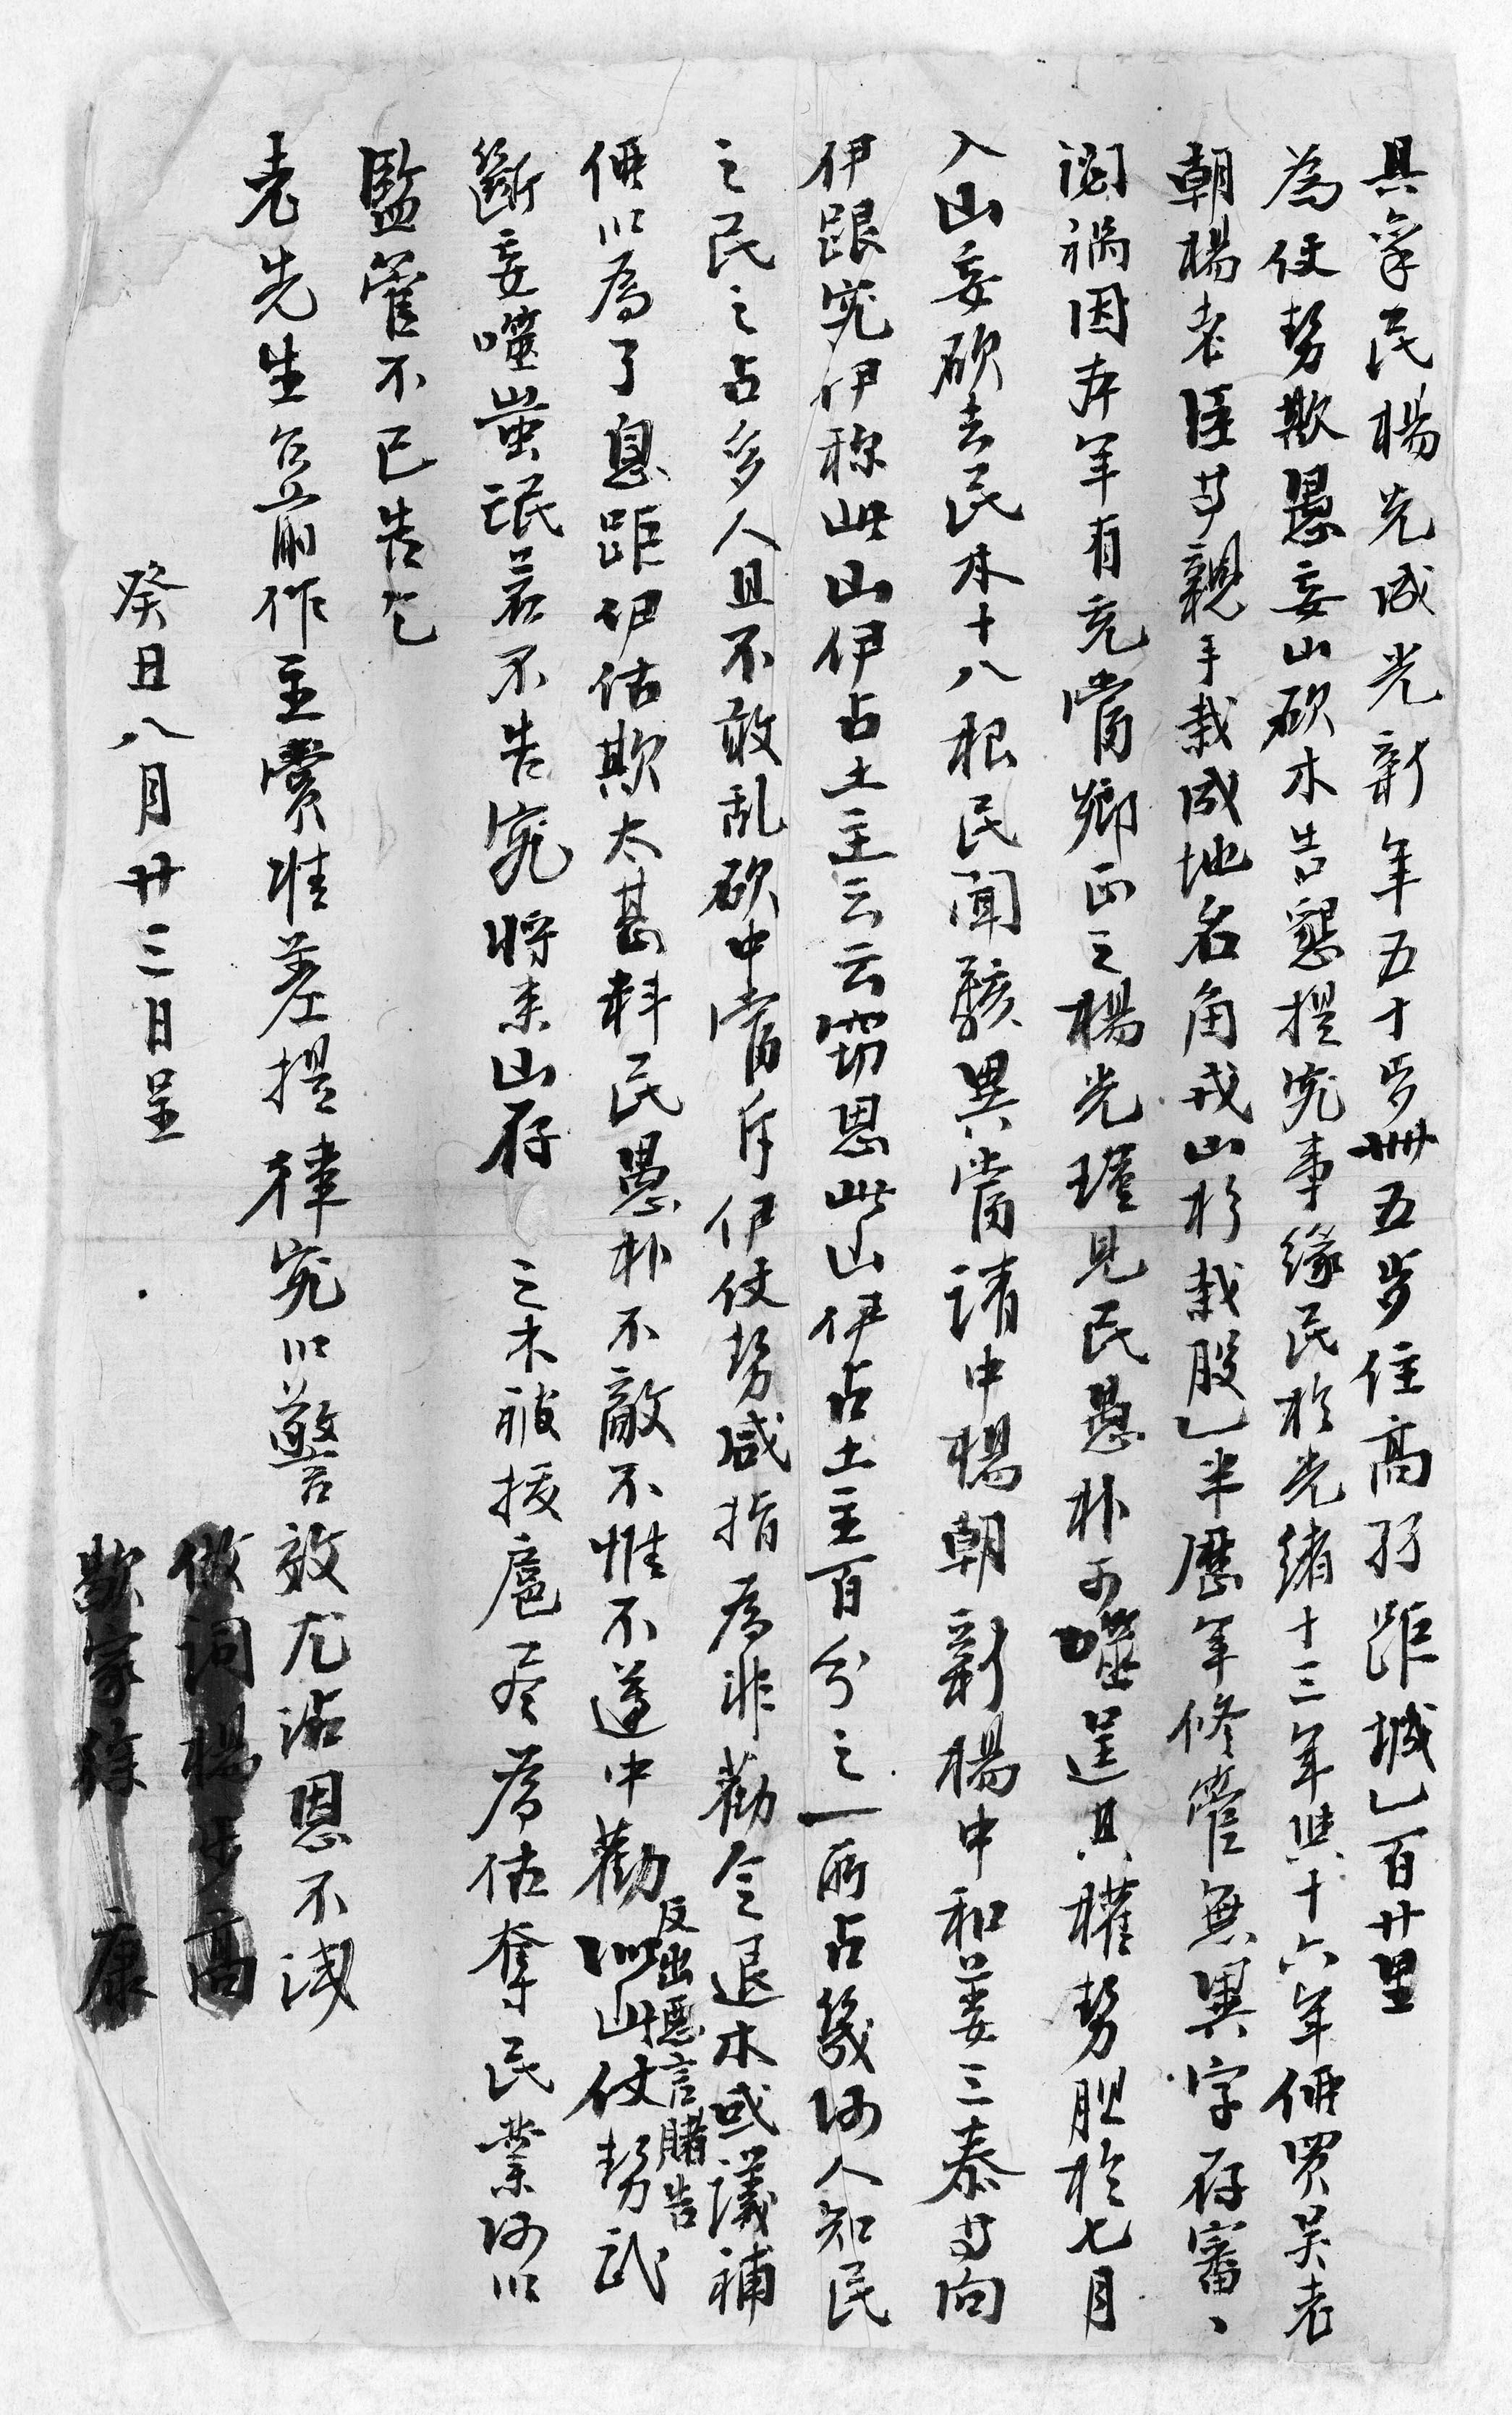 具稟民楊光成光新年五十歩卌五歩住高孖距城乚百廿里
為仗勢欺愚妄山砍木告懇提究事緣民於光緒十三年與十六年俩買吴老
朝楊老侄廿親手栽成地名角戎山杉栽股乚半歷年修管無異字存審、
詎禍因本年有充當鄉正之楊光瑾見民愚朴可噬逞其權勢胆於七月
入山妄砍去民木十八根民聞駭異當請中楊朝新楊中和姜三泰廿向
伊跟究伊称此山伊占土主云云窃思此山伊占土主百分之一所占幾何人知民
之民之占多人且不敢乱砍中當斥伊仗勢咸指為非勸令退木或議補
俩以為了息距伊估欺太甚料民愚朴不敵不惟不遵中勸反出惡言賭告似此仗勢武
斷妄噬蚩氓若不告究將来山存之木被援扈尽為估奪民業何以
監管不已告乞
老先生台前作主賞准差提律究以警效尤沾恩不浅
癸丑八月廿三日呈
做詞楊步高
歇家徐康